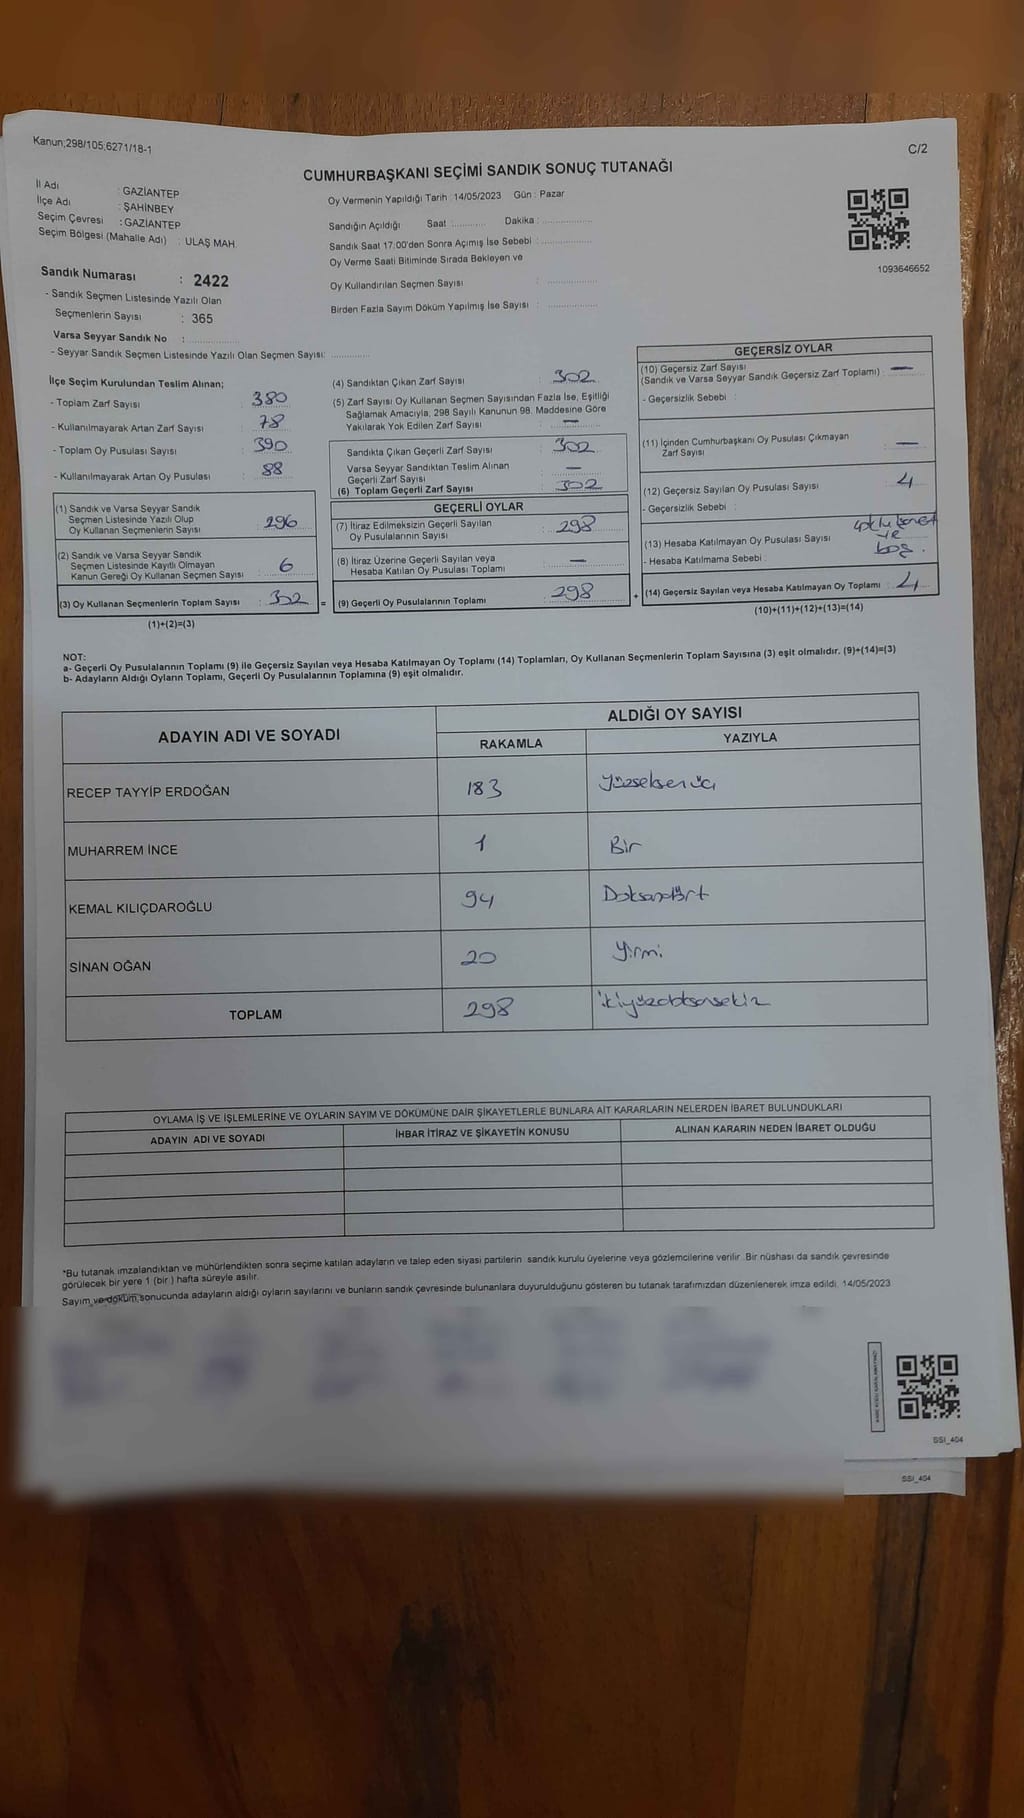 Kanun;298/105;6271/18-1
C/2
CUMHURBAŞKANI SEÇİMİ SANDIK SONUÇ TUTANAĞI
İl Adı : GAZİANTEP
İlçe Adı : ŞAHİNBEY
Seçim Çevresi : GAZİANTEP
Seçim Bölgesi (Mahalle Adı) : ULAŞ MAH.
Oy Vermenin Yapıldığı Tarih : 14/05/2023 Gün : Pazar
Sandığın Açıldığı Saat : Dakika :
Sandık Saat 17:00'den Sonra Açımış İse Sebebi :
Oy Verme Saati Bitiminde Sırada Bekleyen ve
Oy Kullandırılan Seçmen Sayısı :
Birden Fazla Sayım Döküm Yapılmış İse Sayısı :
1093646652
Sandık Numarası : 2422
- Sandık Seçmen Listesinde Yazılı Olan
Seçmenlerin Sayısı : 365
Varsa Seyyar Sandık No :
- Seyyar Sandık Seçmen Listesinde Yazılı Olan Seçmen Sayısı:
İlçe Seçim Kurulundan Teslim Alınan;
- Toplam Zarf Sayısı : 380
- Kullanılmayarak Artan Zarf Sayısı : 78
- Toplam Oy Pusulası Sayısı : 390
- Kullanılmayarak Artan Oy Pusulası : 88
(1) Sandık ve Varsa Seyyar Sandık
Seçmen Listesinde Yazılı Olup
Oy Kullanan Seçmenlerin Sayısı : 296
(2) Sandık ve Varsa Seyyar Sandık
Seçmen Listesinde Kayıtlı Olmayan
Kanun Gereği Oy Kullanan Seçmen Sayısı : 6
(3) Oy Kullanan Seçmenlerin Toplam Sayısı : 302 =
(1)+(2)=(3)
(4) Sandıktan Çıkan Zarf Sayısı : 302
(5) Zarf Sayısı Oy Kullanan Seçmen Sayısından Fazla İse, Eşitliği
Sağlamak Amacıyla, 298 Sayılı Kanunun 98. Maddesine Göre
Yakılarak Yok Edilen Zarf Sayısı : —
Sandıkta Çıkan Geçerli Zarf Sayısı : 302
Varsa Seyyar Sandıktan Teslim Alınan
Geçerli Zarf Sayısı : —
(6) Toplam Geçerli Zarf Sayısı : 302
GEÇERLİ OYLAR
(7) İtiraz Edilmeksizin Geçerli Sayılan
Oy Pusulalarının Sayısı : 298
(8) İtiraz Üzerine Geçerli Sayılan veya
Hesaba Katılan Oy Pusulası Toplamı : —
(9) Geçerli Oy Pusulalarının Toplamı : 298 +
GEÇERSİZ OYLAR
(10) Geçersiz Zarf Sayısı
(Sandık ve Varsa Seyyar Sandık Geçersiz Zarf Toplamı) : —
- Geçersizlik Sebebi :
(11) İçinden Cumhurbaşkanı Oy Pusulası Çıkmayan
Zarf Sayısı : —
(12) Geçersiz Sayılan Oy Pusulası Sayısı : 4
- Geçersizlik Sebebi :
(13) Hesaba Katılmayan Oy Pusulası Sayısı : ve
- Hesaba Katılmama Sebebi : boş.
(14) Geçersiz Sayılan veya Hesaba Katılmayan Oy Toplamı : 4
(10)+(11)+(12)+(13)=(14)
NOT:
a- Geçerli Oy Pusulalarının Toplamı (9) ile Geçersiz Sayılan veya Hesaba Katılmayan Oy Toplamı (14) Toplamları, Oy Kullanan Seçmenlerin Toplam Sayısına (3) eşit olmalıdır. (9)+(14)=(3)
b- Adayların Aldığı Oyların Toplamı, Geçerli Oy Pusulalarının Toplamına (9) eşit olmalıdır.
ADAYIN ADI VE SOYADI
ALDIĞI OY SAYISI
RAKAMLA YAZIYLA
RECEP TAYYİP ERDOĞAN 183 Yüzseksenüç
MUHARREM İNCE 1 Bir
KEMAL KILIÇDAROĞLU 94 Doksandört
SİNAN OĞAN 20 Yirmi
TOPLAM 298 ikiyüzdoksansekiz
OYLAMA İŞ VE İŞLEMLERİNE VE OYLARIN SAYIM VE DÖKÜMÜNE DAİR ŞİKAYETLERLE BUNLARA AİT KARARLARIN NELERDEN İBARET BULUNDUKLARI
ADAYIN ADI VE SOYADI İHBAR İTİRAZ VE ŞİKAYETİN KONUSU ALINAN KARARIN NEDEN İBARET OLDUĞU
*Bu tutanak imzalandıktan ve mühürlendikten sonra seçime katılan adayların ve talep eden siyasi partilerin sandık kurulu üyelerine veya gözlemcilerine verilir. Bir nüshası da sandık çevresinde
görülecek bir yere 1 (bir ) hafta süreyle asılır.
Sayım ve döküm sonucunda adayların aldığı oyların sayılarını ve bunların sandık çevresinde bulunanlara duyurulduğunu gösteren bu tutanak tarafımızdan düzenlenerek imza edildi. 14/05/2023
SSI_404
SSI_404